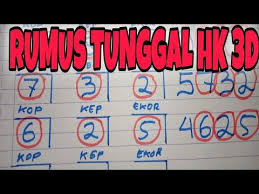 RUMUS TUNGGAL HK 3D
7 3 2 5732
KOP KEP EKOR
6 2 5 4625
KOP KEP EKOR